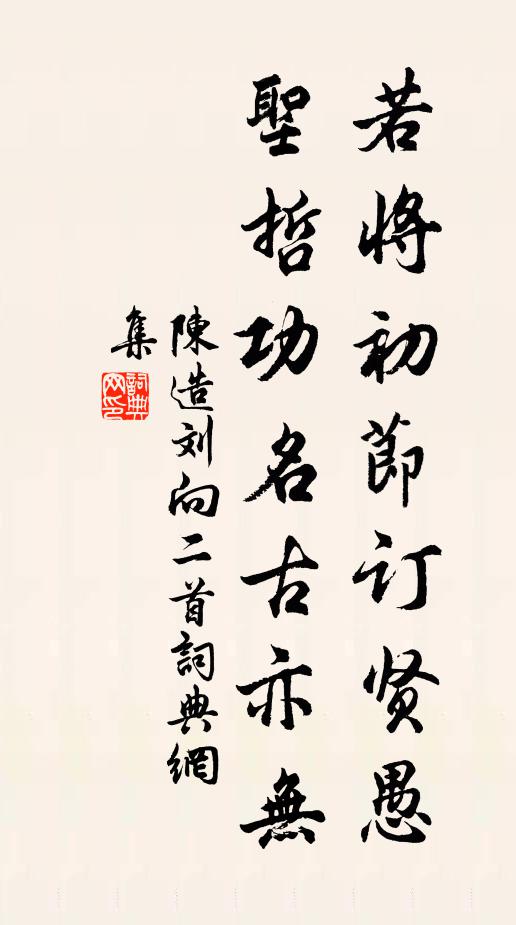 若将初節订贤愚
聖哲功名古亦無
陳造刘向二首詞典網
集
詞典网印